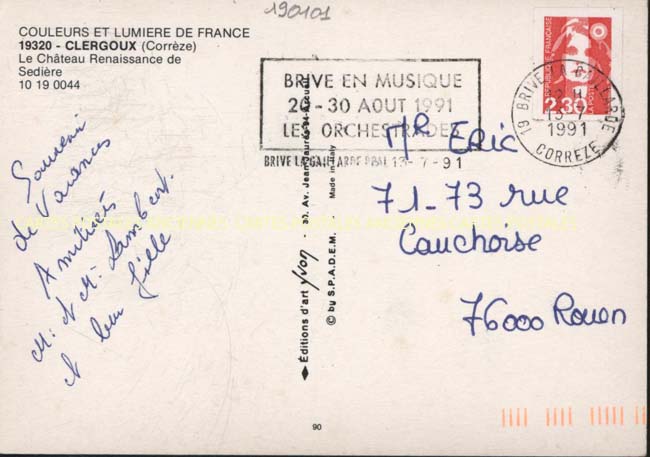 190101
COULEURS ET LUMIERE DE FRANCE
19320 - CLERGOUX (Corrèze)
Le Château Renaissance de
Sedière
10 19 0044
BRIVE EN MUSIQUE
20-30 AOUT 1991
LES ORCHESTRADES
BRIVE LA GAILLARDE PPAL 13-7-91
REPUBLIQUE FRANÇAISE
2,30
LA POSTE
19 BRIVE LA GAILLARDE
13-7
1991
CORREZE
Souvenir
de Vacances
Amitiés
M. N M. Lambert.
N leur fille
Mr ERIC
71-73 rue
Cauchoise
76000 Rouen
Éditions d'art Yvon - 30, Av. Jean-Jaurès
Made in Italy
© by S.P.A.D.E.M.
90